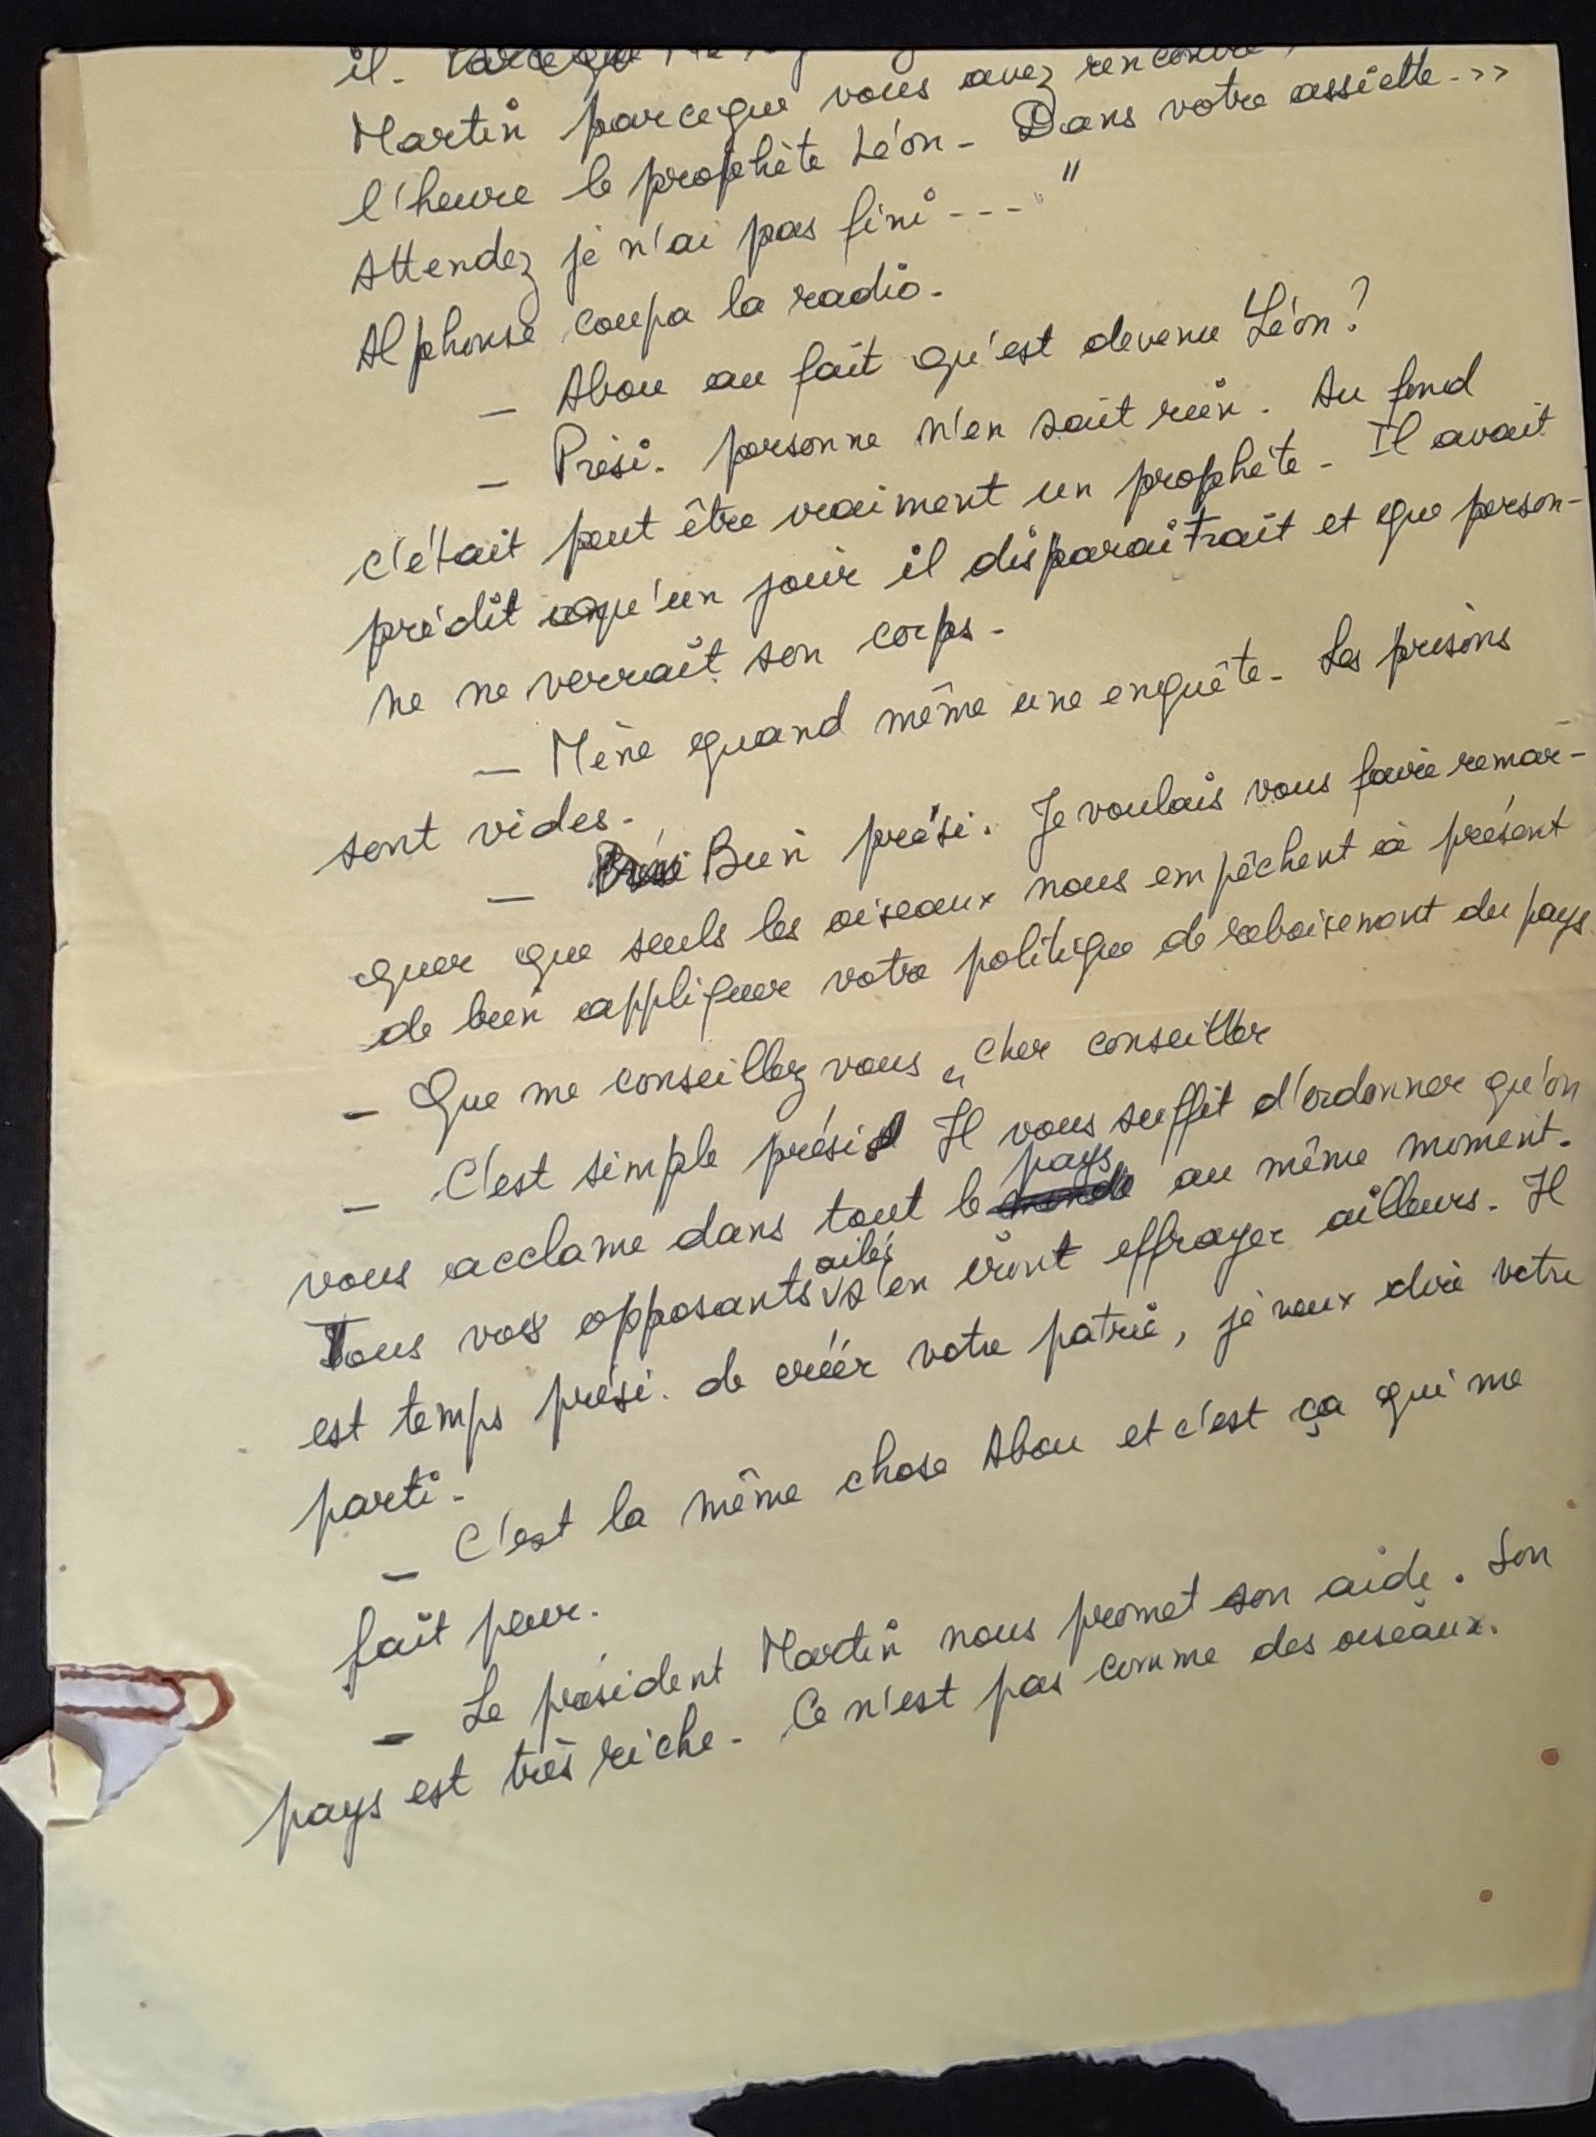 il.
Martin parceque vous avez rencontré
l'heure le prophète Léon - Dans votre assiette - >>
Attendez je n'ai pas fini - - - "
Alphonse coupa la radio.
— Abou au fait qu'est devenu Léon?
— Prési. personne n'en sait rien. Au fond
c'était peut être vraiment un prophète - Il avait
prédit qu'un jour il disparaîtrait et que person-
ne ne verrait son corps -
— Mène quand même une enquête - Les prisons
sont vides -
— Bien prési. Je voulais vous faire remar-
quer que seuls les oiseaux nous empêchent à présent
de bien appliquer votre politique de reboisement du pays
— Que me conseillez vous, cher conseiller
— C'est simple prési Il vous suffit d'ordonner qu'on
vous acclame dans tout le pays au même moment.
Tous vos opposants ailés s'en iront effrayer ailleurs. Il
est temps prési. de créer votre patrie, je veux dire votre
parti -
— C'est la même chose Abou et c'est ça qui me
fait peur.
— Le président Martin nous promet son aide. Son
pays est très riche - Ce n'est pas comme des oiseaux.